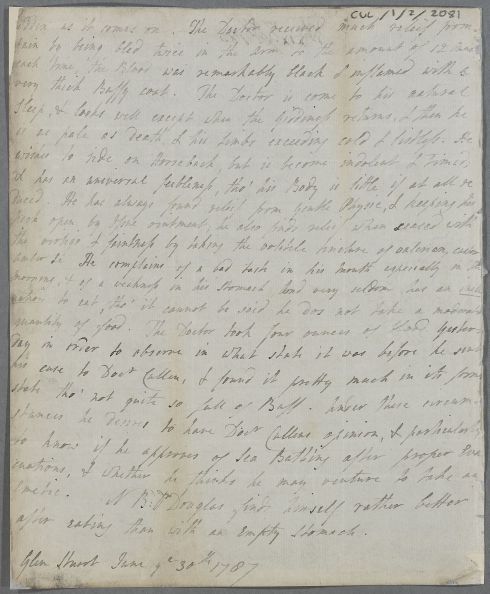 CUL/1/2/2081
as it comes on. The Doctor received much relief from
pain by being bled twice in the arm to the amount of 12 ounces
each time, the Blood was remarkably black & inflamed with a
very thick Buffy coat. The Doctor is come to his natural
Sleep, & looks well except when the Giddiness returns, & then he
is as pale as death & his limbs exceeding cold & listless. He
wishes to ride on Horseback, but is become indolent & timid,
& has an universal feebleness, tho' his Body is little if at all re
duced. He has always found relief from gentle Physic, & keeping his
open by Issue ointment, he also finds relief when seazed with
the & faintness by taking the volatile tincture of valerian,
He complains of a bad taste in his mouth especially in the
morning, & of a weakness in his stomach and very seldom has an
to eat, tho' it cannot be said he dos not take a moderate
quantity of food. The Doctor took four ounces of blood yester
day in order to observe in what state it was before he sent
his case to Doct Cullen, & found it pretty much in its form
state tho' not quite so full of Buff. Under these circum
stances he desires to have Doct Cullens opinion, & particularly
to know if he approves of Sea Bathing after proper Eva
cuations, & whether he thinks he may venture to take an
Emetic. N B: Dr Douglas finds himself rather better
after eating than with an Empty Stomach.
Glen Stuart June ye 30th 1787